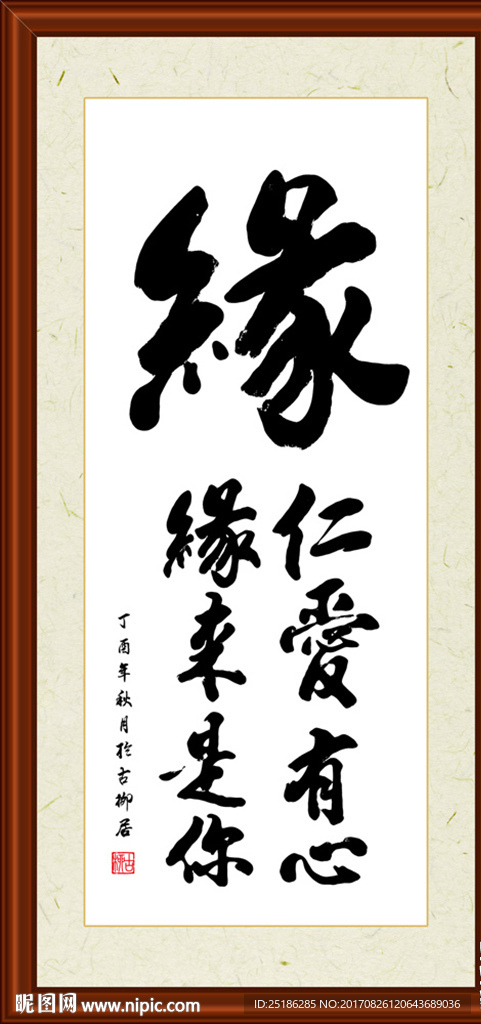 緣
仁愛有心
緣來是你
丁酉年秋月於古柳居
昵图网 www.nipic.com
ID:25186285 NO:20170826120643689036